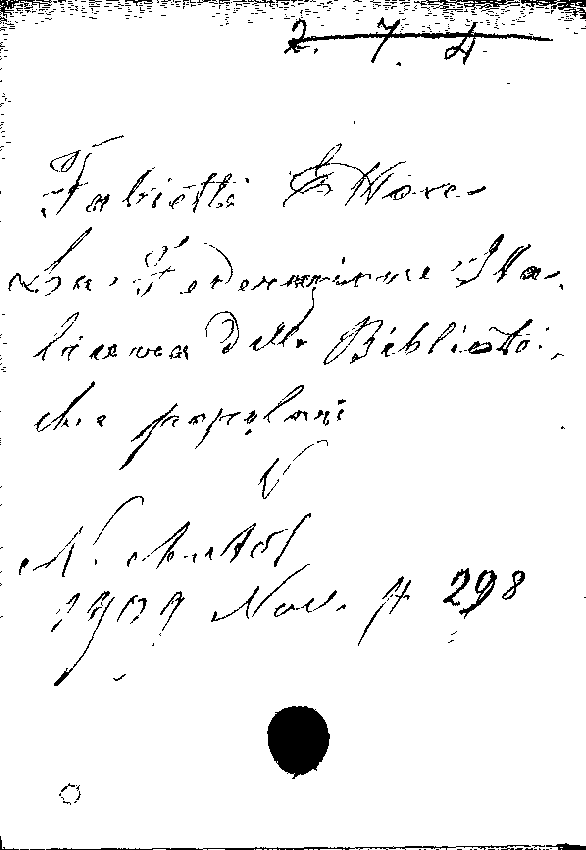 2. 7. 4
Fabietti Ettore
La Federazione Ita-
liana delle Bibliote-
che popolari
V
N. Antol
1909 Nov. p 298